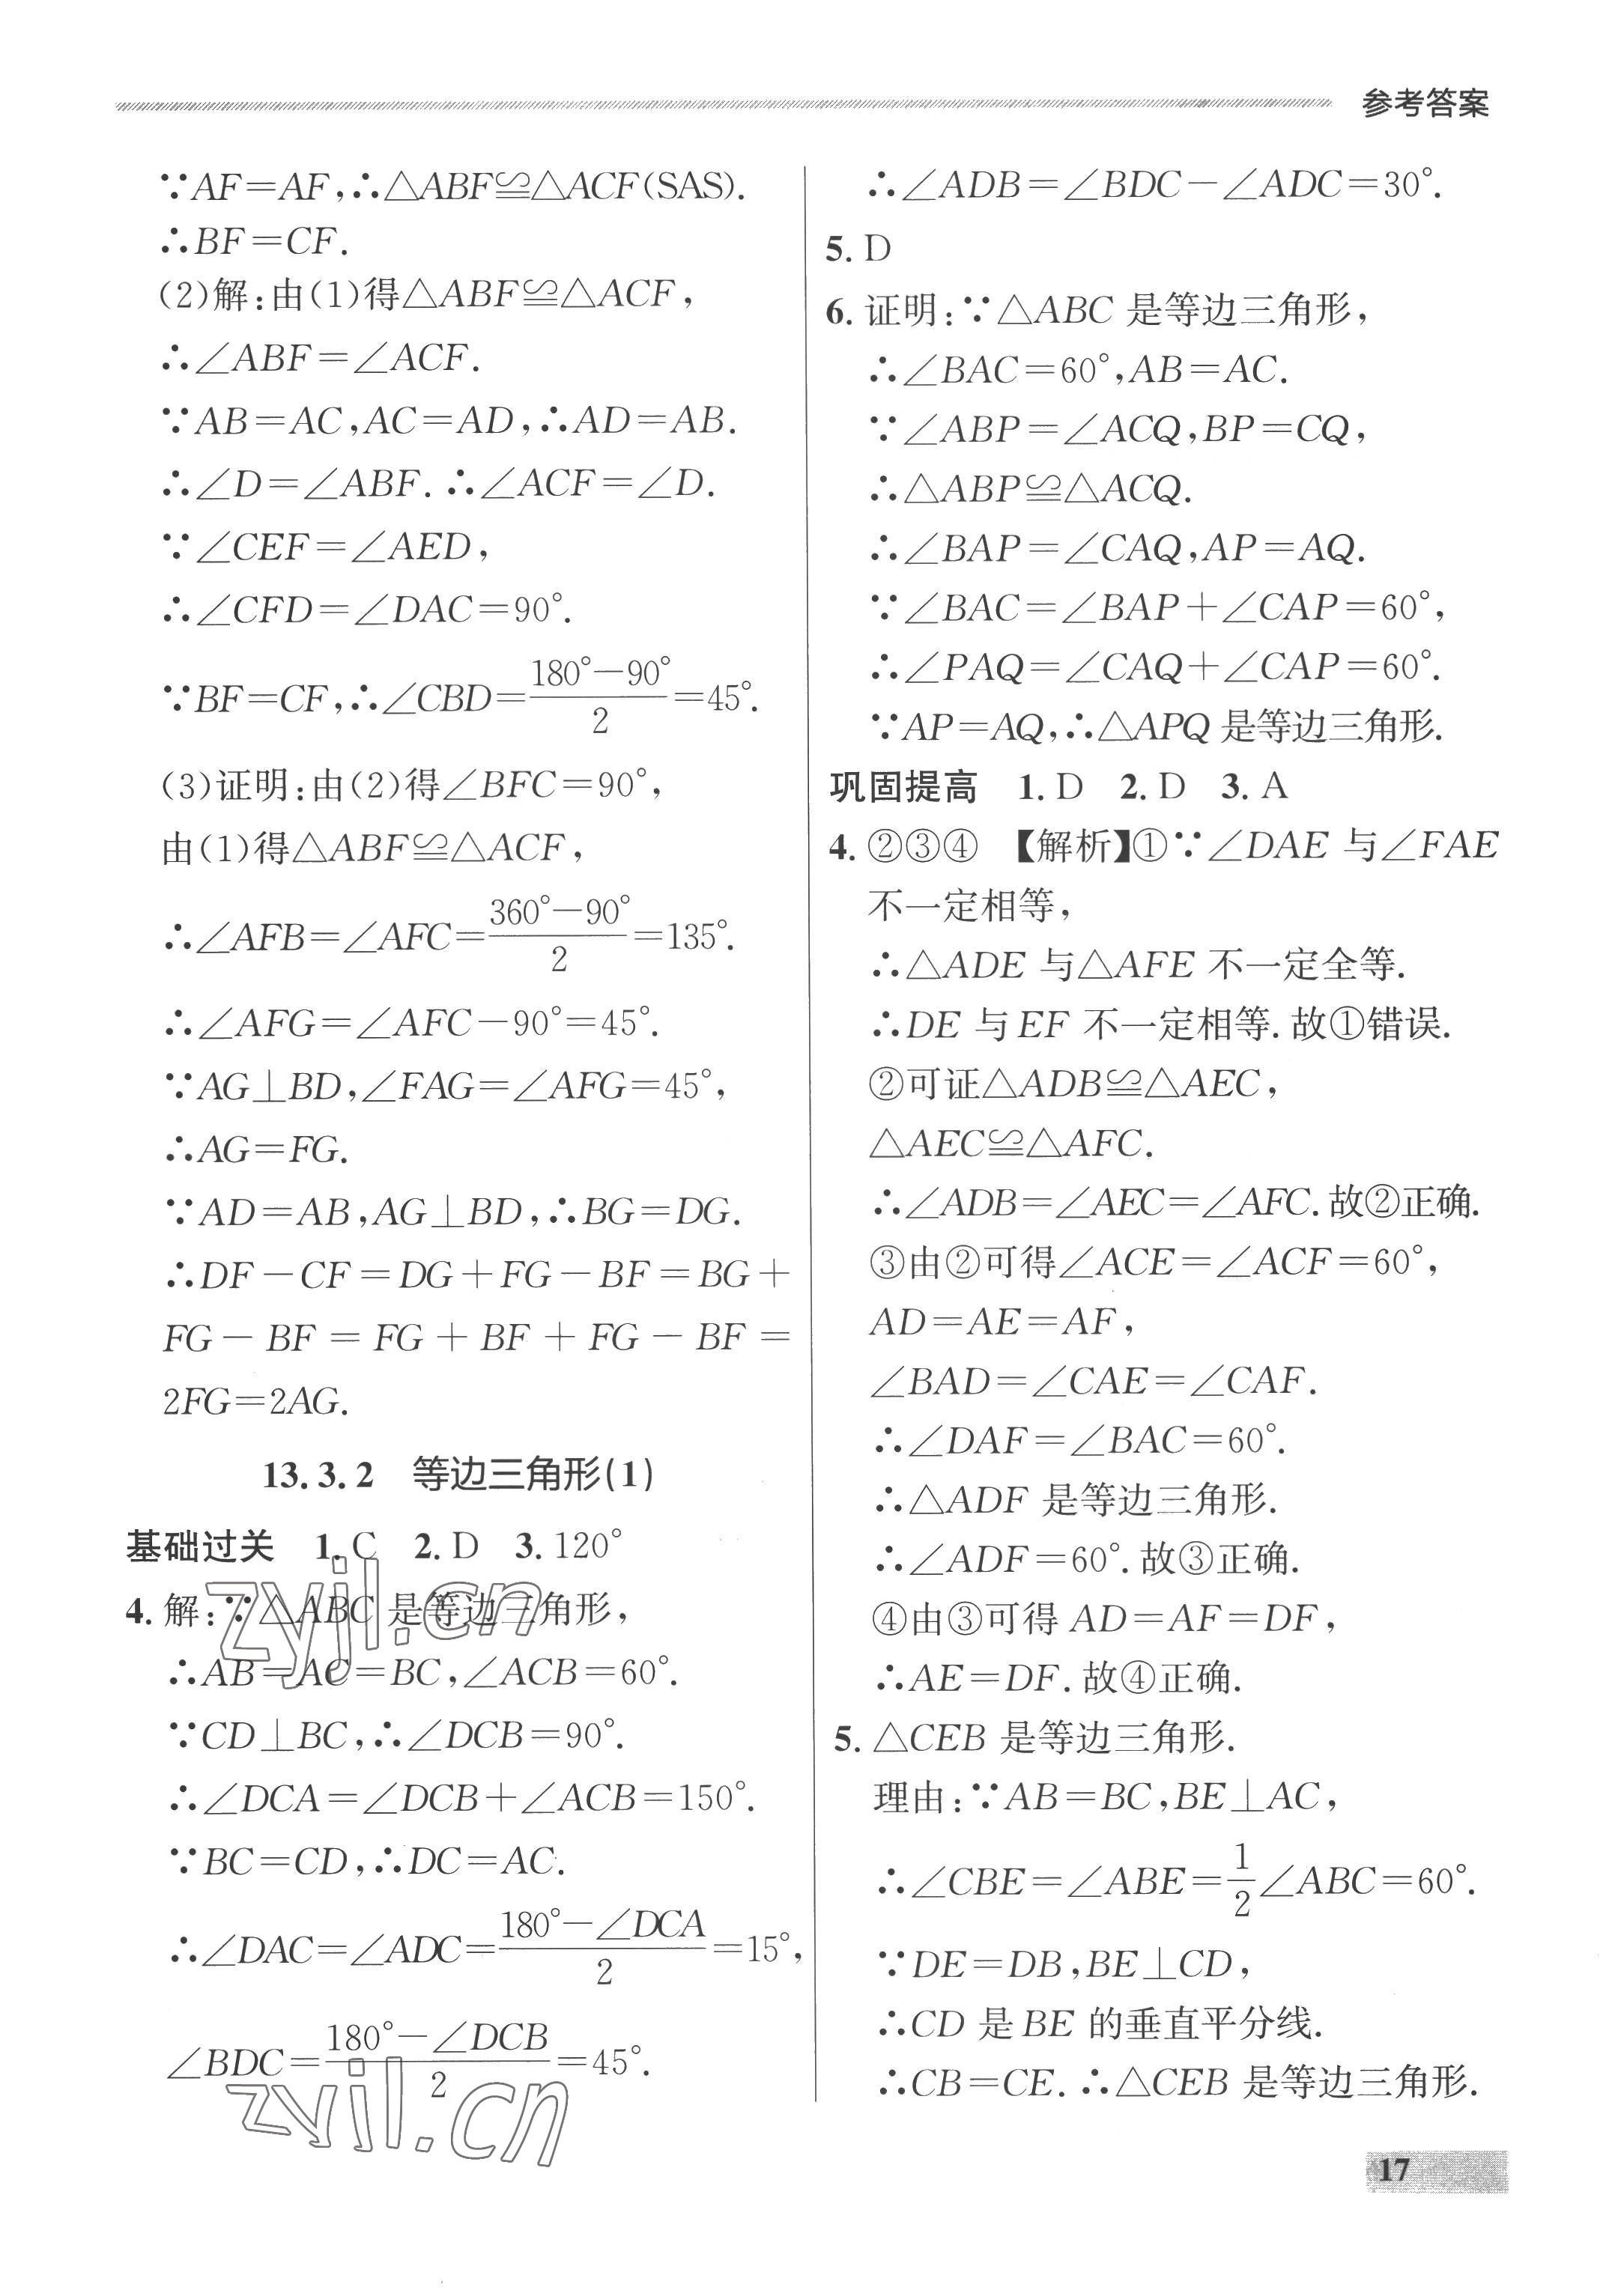 参考答案
∵AF=AF,∴△ABF≌△ACF(SAS).
∴BF=CF.
(2)解:由(1)得△ABF≌△ACF,
∴∠ABF=∠ACF.
∵AB=AC,AC=AD,∴AD=AB.
∴∠D=∠ABF.∴∠ACF=∠D.
∵∠CEF=∠AED,
∴∠CFD=∠DAC=90°.
∵BF=CF,∴∠CBD=\frac{180°-90°}{2}=45°.
(3)证明:由(2)得∠BFC=90°,
由(1)得△ABF≌△ACF,
∴∠AFB=∠AFC=\frac{360°-90°}{2}=135°.
∴∠AFG=∠AFC-90°=45°.
∵AG⊥BD,∠FAG=∠AFG=45°,
∴AG=FG.
∵AD=AB,AG⊥BD,∴BG=DG.
∴DF-CF=DG+FG-BF=BG+
FG-BF=FG+BF+FG-BF=
2FG=2AG.
13.3.2 等边三角形(1)
基础过关 1.C 2.D 3.120°
4.解:∵△ABC是等边三角形,
∴AB=AC=BC,∠ACB=60°.
∵CD⊥BC,∴∠DCB=90°.
∴∠DCA=∠DCB+∠ACB=150°.
∵BC=CD,∴DC=AC.
∴∠DAC=∠ADC=\frac{180°-∠DCA}{2}=15°,
∠BDC=\frac{180°-∠DCB}{2}=45°.
∴∠ADB=∠BDC-∠ADC=30°.
5.D
6.证明:∵△ABC是等边三角形,
∴∠BAC=60°,AB=AC.
∵∠ABP=∠ACQ,BP=CQ,
∴△ABP≌△ACQ.
∴∠BAP=∠CAQ,AP=AQ.
∵∠BAC=∠BAP+∠CAP=60°,
∴∠PAQ=∠CAQ+∠CAP=60°.
∵AP=AQ,∴△APQ是等边三角形.
巩固提高 1.D 2.D 3.A
4.②③④ 【解析】①∵∠DAE与∠FAE
不一定相等,
∴△ADE与△AFE不一定全等.
∴DE与EF不一定相等.故①错误.
②可证△ADB≌△AEC,
△AEC≌△AFC.
∴∠ADB=∠AEC=∠AFC.故②正确.
③由②可得∠ACE=∠ACF=60°,
AD=AE=AF,
∠BAD=∠CAE=∠CAF.
∴∠DAF=∠BAC=60°.
∴△ADF是等边三角形.
∴∠ADF=60°.故③正确.
④由③可得AD=AF=DF,
∴AE=DF.故④正确.
5.△CEB是等边三角形.
理由:∵AB=BC,BE⊥AC,
∴∠CBE=∠ABE=\frac{1}{2}∠ABC=60°.
∵DE=DB,BE⊥CD,
∴CD是BE的垂直平分线.
∴CB=CE.∴△CEB是等边三角形.
17
zyjl.cn
zyjl.cn